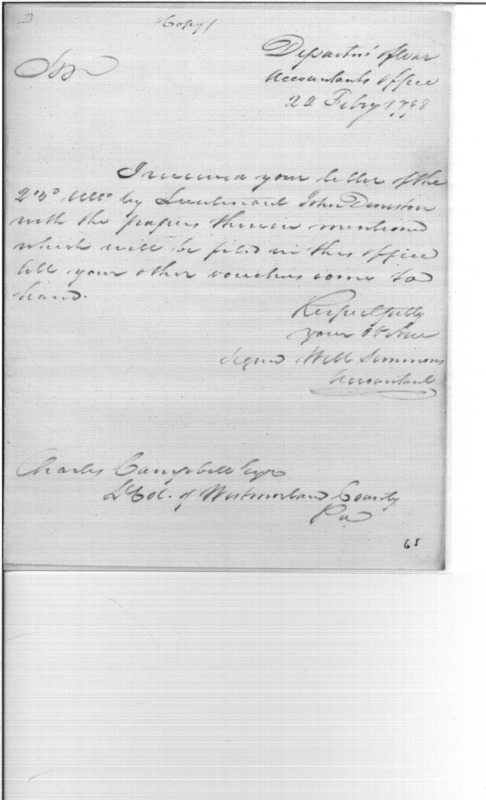 D
Copy
Departmt of War
Accountants office
22 Feby 1798
Sir
I received your letter of the
23d Ulto by Lieutenant John
with the papers therein mentioned
which will be filed in this office
till your other vouchers come to
hand.
Respectfully
your ob Ser
signed Will Simmons
Accountant
Charles Campbell Esqr
Lt Col. of Westmorland County
Pa
65